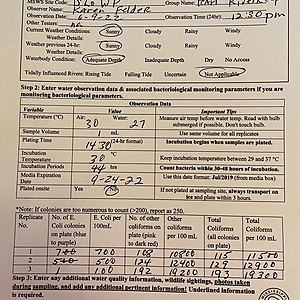 MSWS Site Code:
Group Name:
Observer Name: Karen Felder
Observation Date: 6-9-22 Observation Time (24hr) 12:30 pm
Other Testers: na
Current Weather Conditions: Sunny Cloudy Rainy Windy
Weather Conditions
previous 24-hr: Sunny Cloudy Rainy Windy
Weather Conditions
previous 48-hr: Sunny Cloudy Rainy Windy
Waterbody Condition: Adequate Depth Inadequate Depth Dry No Access
Tidally Influenced Rivers: Rising Tide Falling Tide Uncertain Not Applicable
Step 2: Enter water observation data & associated bacteriological monitoring parameters if you are
monitoring bacteriological parameters.
Observation Data
Variable Value Important Tips
Temperature (°C) Air: 30 Water: 27 Measure air temp before water temp. Read with bulb
submerged if possible. Don't touch bulb.
Sample Volume 1 mL Use same volume for all replicates
Plating Time 1430 (24-hr format) Incubation begins when samples are plated.
Incubation
Temperature 30 °C Keep incubation temperature between 29 and 37 °C
Incubation Periods 44 hrs Count bacteria within 30-48 hours of incubation.
Media Expiration
Date 9-24-22 Use this date format: Jul/2019 (from media box)
Plated onsite Yes No If not plated at sampling site, always transport on
ice and plate within 3 hours.
*Note: If colonies are too numerous to count (>200), report as 250.
Replicate No. No. of E Coli colonies on plate (blue to purple) E. Coli per 100mL No. of other coliforms on plate (pink to dark red) Other Coliforms per 100 mL Total Coliforms (all colonies on plate) Total Coliforms per 100 mL
1 700 108 10800 115 11500
2 500 124 12400 129 12900
3 100 192 19200 193 19300
Step 3: Enter any additional water quality information, wildlife sightings, photos taken
during sampling, and add any additional pertinent information! Underlined information
is required.